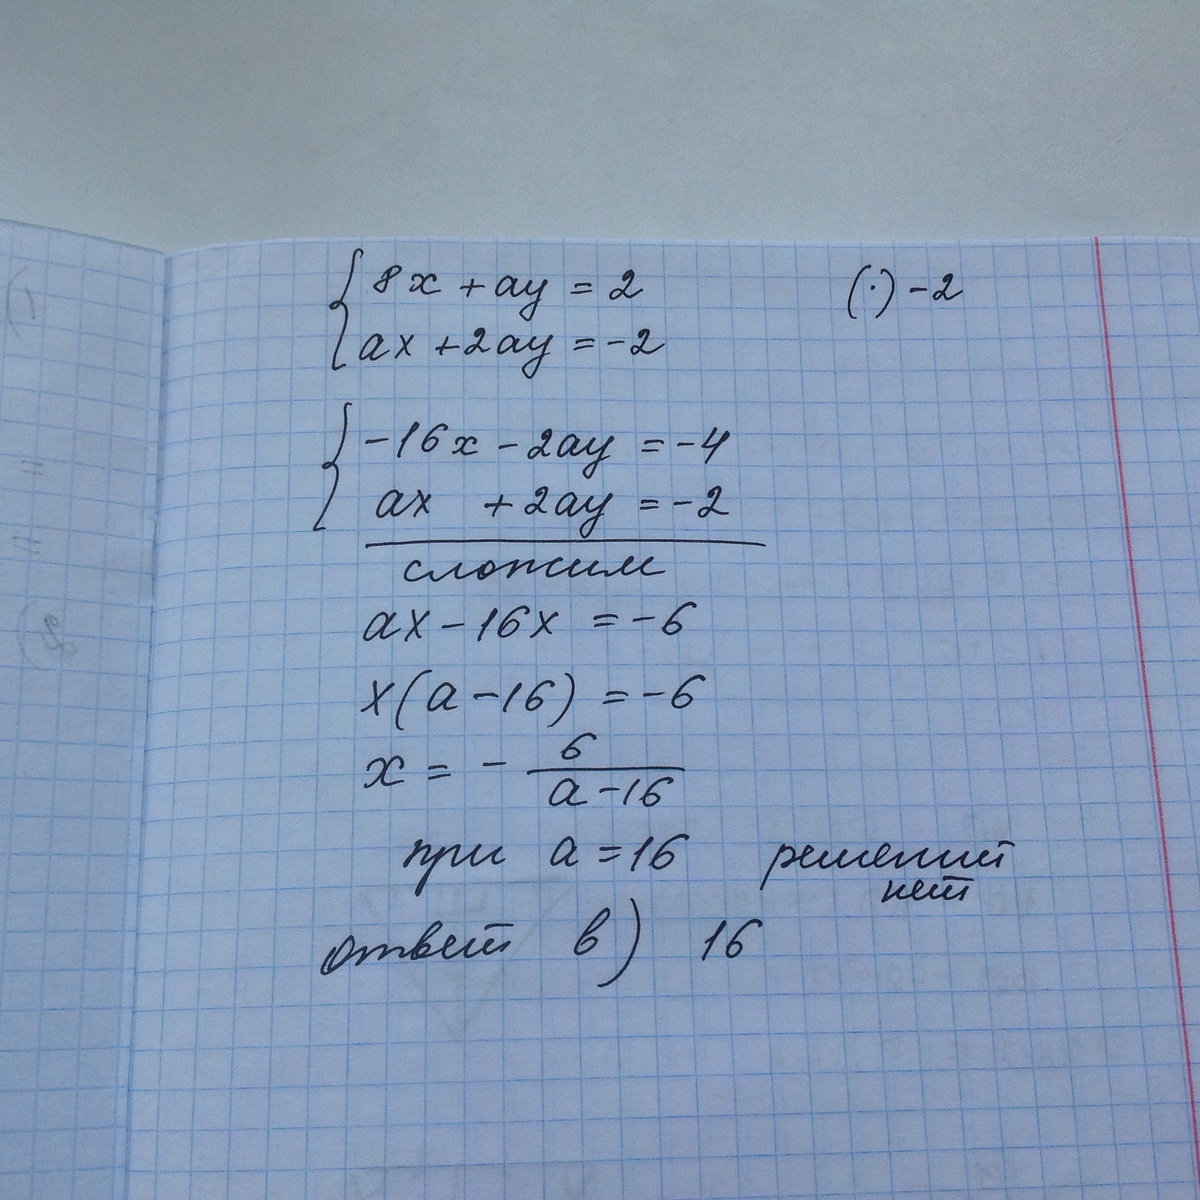 8x + ay = 2 (·) -2
ax + 2ay = -2
-16x - 2ay = -4
ax + 2ay = -2
сложим
ax - 16x = -6
x(a - 16) = -6
x = - 6/(a - 16)
при a = 16 решений
нет
ответ в) 16